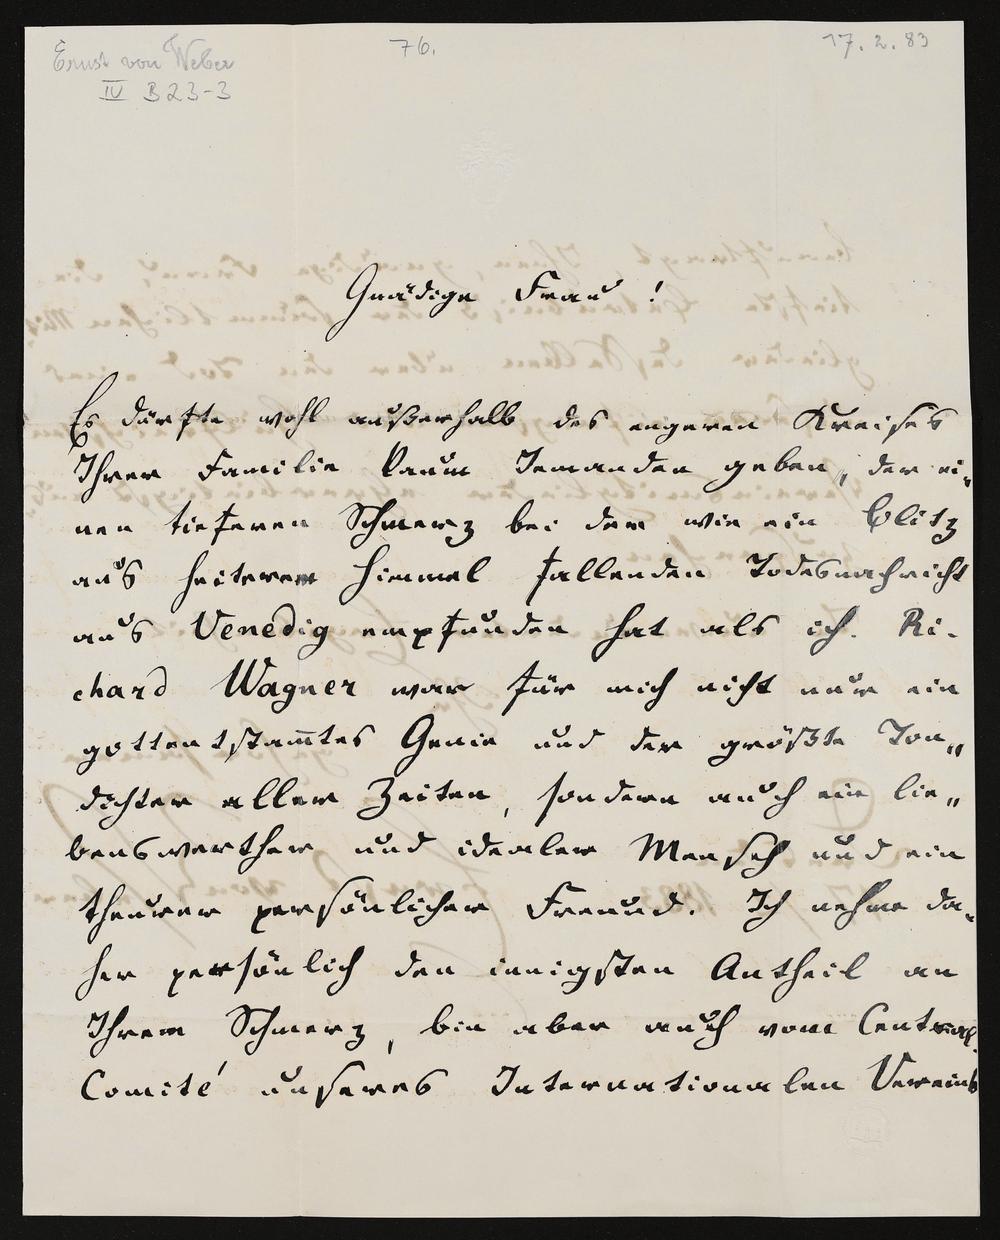 Ernst von Weber
76.
17. 2. 83
IV B23-3
Gnädige Frau!
Es dürfte wohl außerhalb des engeren Kreises
Ihrer Familie kaum Jemanden geben, der ei-
nen tieferen Schmerz bei der wie ein Blitz
aus heiterem Himmel fallenden Todesnachricht
aus Venedig empfunden hat als ich. Ri-
chard Wagner war für mich nicht nur ein
gottentstam̅tes Genie und der größte Ton„
dichter aller Zeiten, sondern auch ein lie„
benswerther und idealer Mensch und ein
theurer persönlicher Freund. Ich nehme da-
her persönlich den innigsten Antheil an
Ihrem Schmerz, bin aber auch vom Central-
Comité unseres Internationalen Vereins